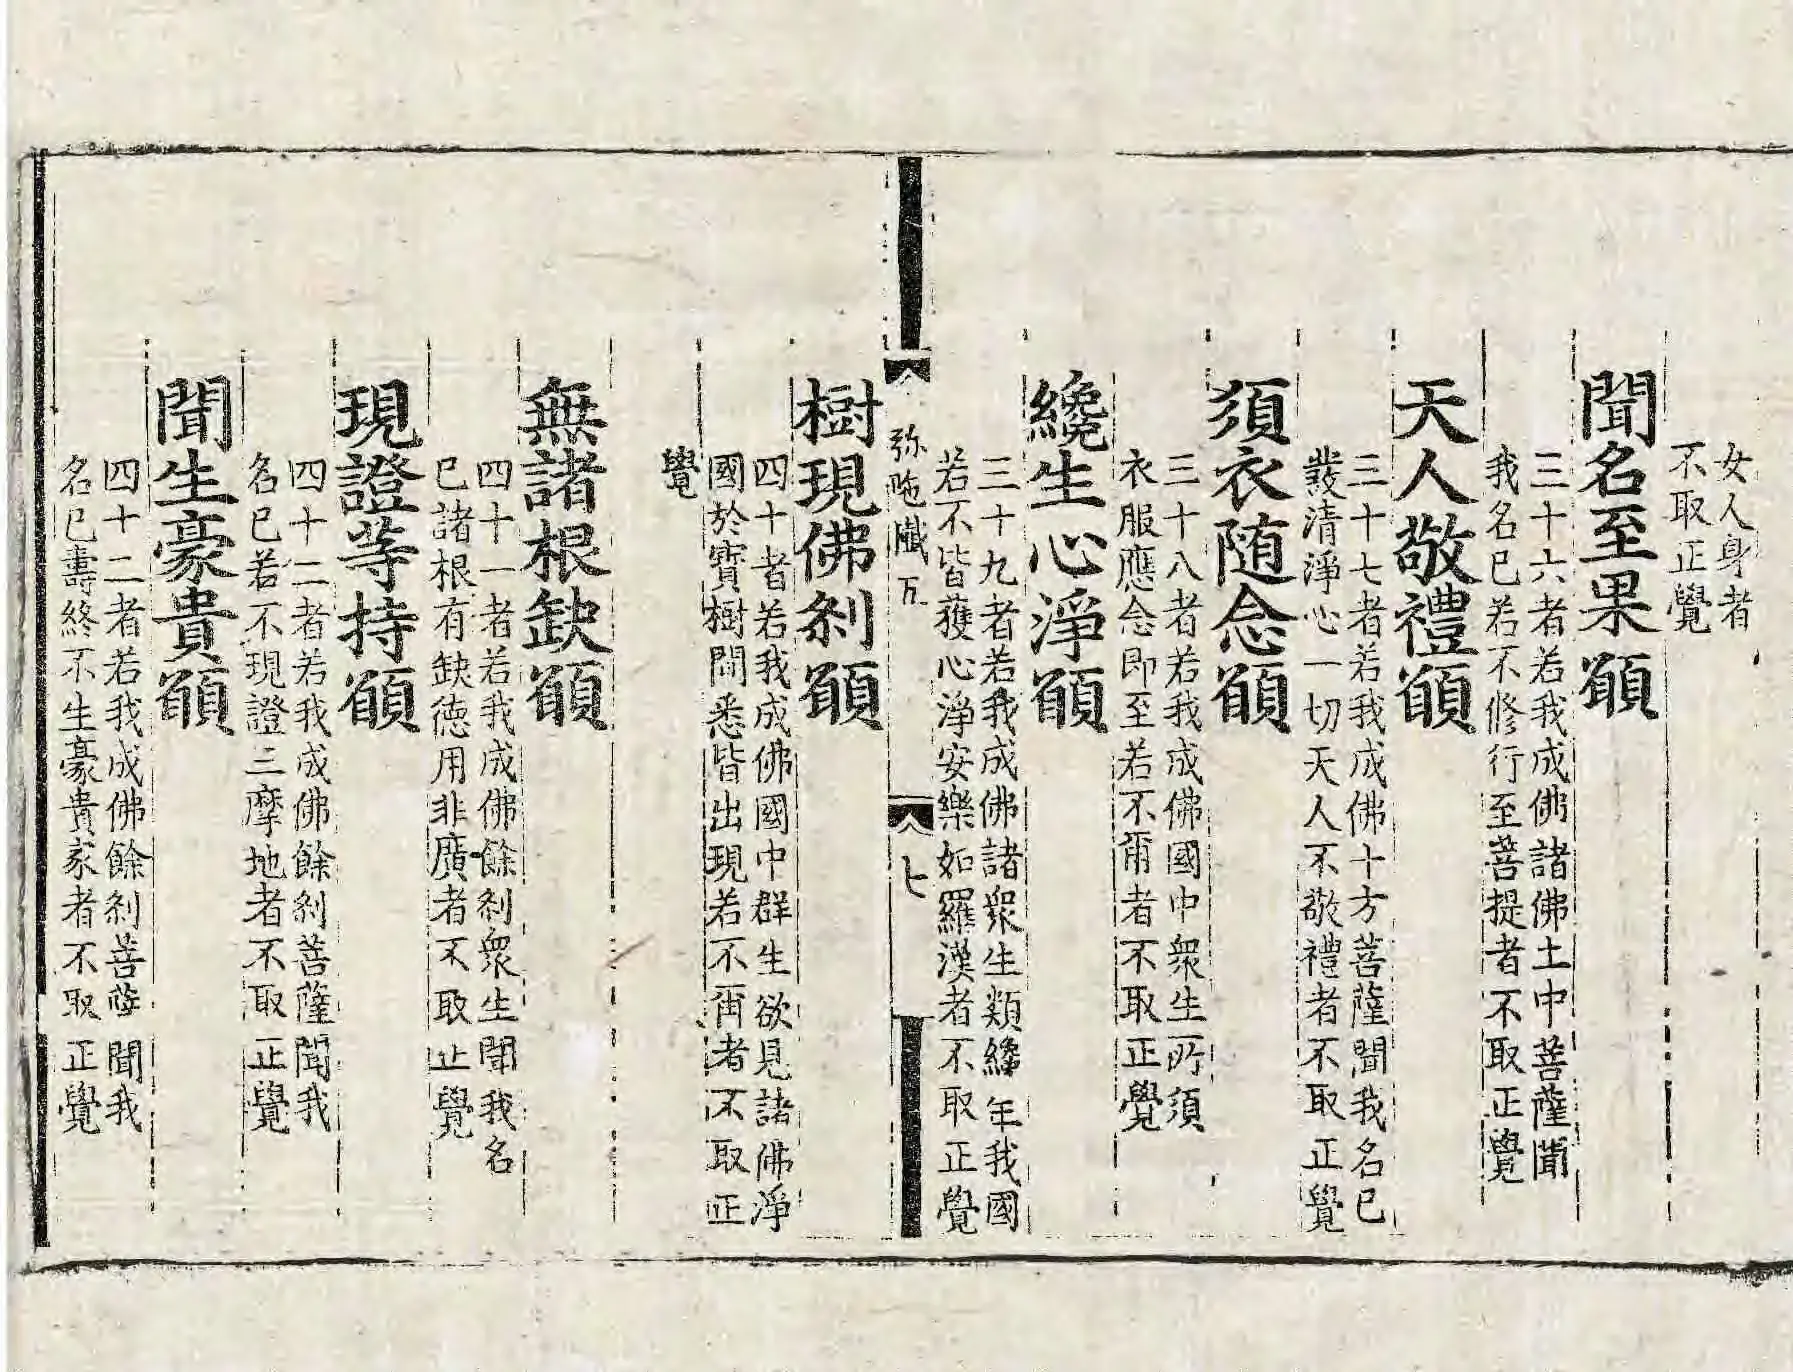 女人身者
不取正覺
聞名至果願
三十六者若我成佛諸佛土中菩薩聞
我名已若不修行至菩提者不取正覺
天人敬禮願
三十七者若我成佛十方菩薩聞我名已
發清淨心一切天人不敬禮者不取正覺
須衣随念願
三十八者若我成佛國中衆生所須
衣服應念即至若不爾者不取正覺
纔生心淨願
三十九者若我成佛諸衆生類纔生我國
若不皆獲心淨安樂如羅漢者不取正覺
弥陁懺
七
樹現佛刹願
四十者若我成佛國中群生欲見諸佛淨
國於寳樹間悉皆出現若不爾者不取正
覺
無諸根缺願
四十一者若我成佛餘刹衆生聞我名
已諸根有缺德用非廣者不取正覺
現證等持願
四十二者若我成佛餘刹菩薩聞我
名已若不現證三摩地者不取正覺
聞生豪貴願
四十二者若我成佛餘刹菩薩聞我
名已壽終不生豪貴家者不取正覺